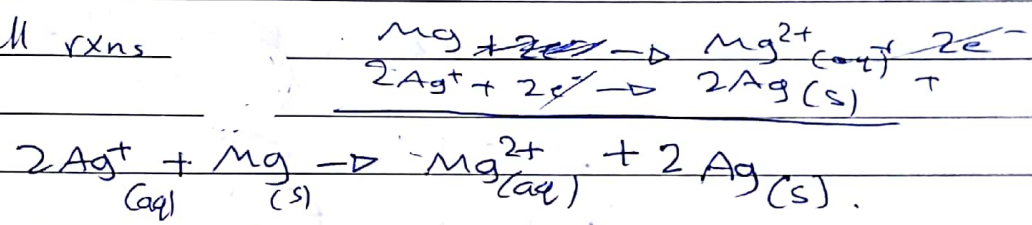 ll rxns
Mg → Mg²⁺(aq) + 2e⁻
2Ag⁺ + 2e⁻ → 2Ag(s) +
2Ag⁺(aq) + Mg(s) → Mg²⁺(aq) + 2Ag(s).